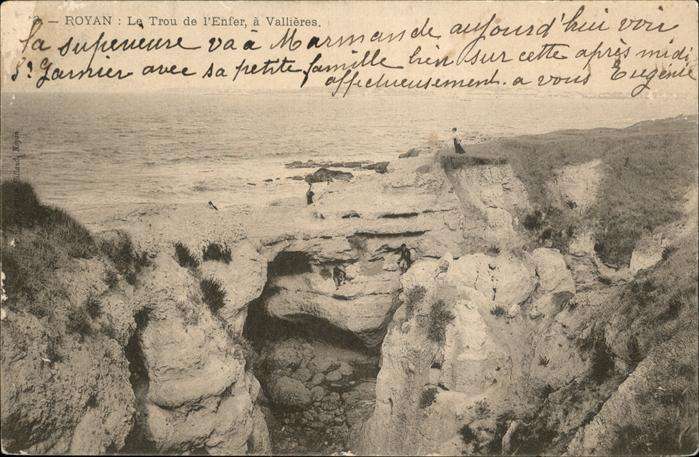 — ROYAN : Le Trou de l'Enfer, à Vallières.
la supérieure va à Marmande aujourd'hui voir
Sr Garnier avec sa petite famille bien sur cette après midi
affectueusement. a vous Eugénie